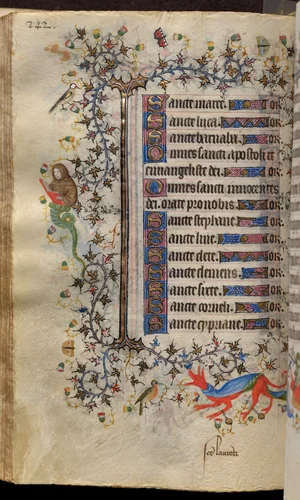 242.
Sancte marce. or.
Sancte luca. or.
Sancte barnaba. or.
Omnes sancti apostoli et
euuangeliste dei. or.
Omnes sancti innocentes
dei. orate pro nobis.
Sancte stephane. or.
Sancte line. or.
Sancte clete. or.
Sancte clemens. or.
Sancte sixte. or.
Sancte corneli. or.
Sancte cypriane. or.